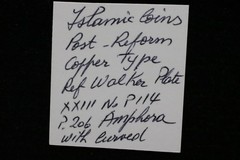 Islamic Coins
Post-Reform
Copper Type
Ref Walker Plate
XXIII No P114
P.206 Amphora
with Curved